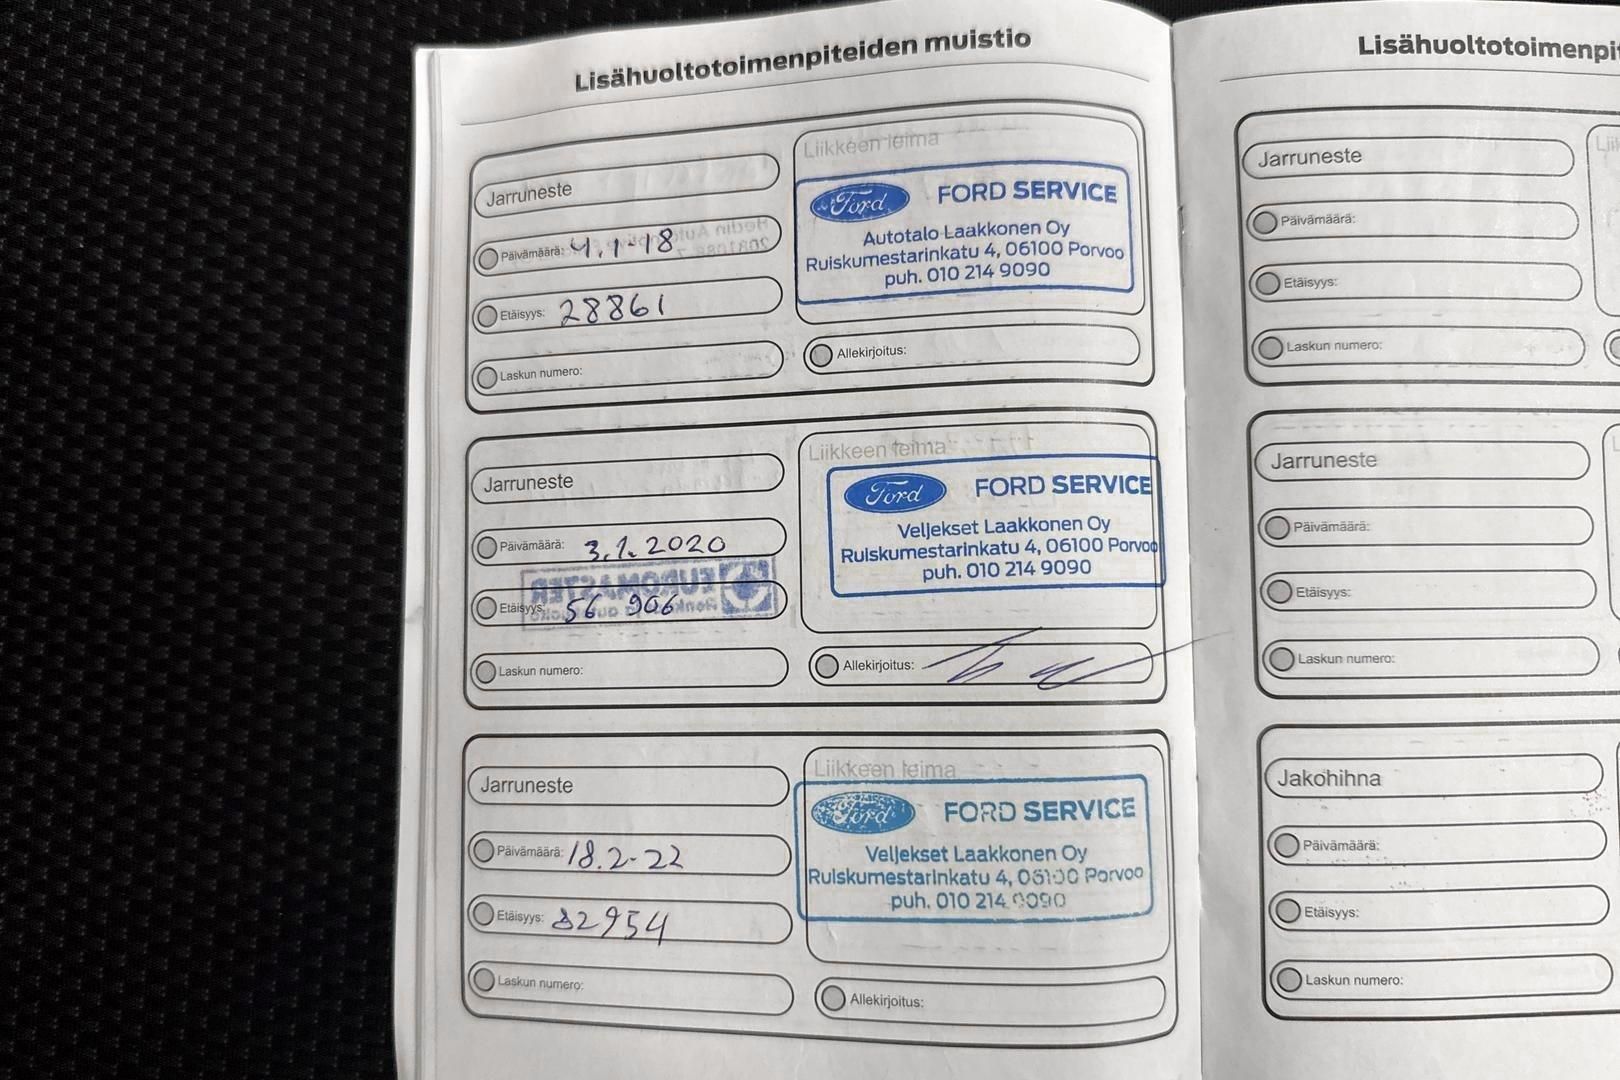 Lisähuoltotoimenpiteiden muistio
Jarruneste
Päivämäärä: 4.1-18
Etäisyys: 28861
Laskun numero:
Liikkeen leima
Ford FORD SERVICE
Autotalo Laakkonen Oy
Ruiskumestarinkatu 4, 06100 Porvoo
puh. 010 214 9090
Allekirjoitus:
Jarruneste
Päivämäärä: 3.1.2020
Etäisyys: 56 906
Laskun numero:
EUROMASTER
Liikkeen leima
Ford FORD SERVICE
Veljekset Laakkonen Oy
Ruiskumestarinkatu 4, 06100 Porvoo
puh. 010 214 9090
Allekirjoitus:
Jarruneste
Päivämäärä: 18.2-22
Etäisyys: 82954
Laskun numero:
Liikkeen leima
Ford FORD SERVICE
Veljekset Laakkonen Oy
Ruiskumestarinkatu 4, 06100 Porvoo
puh. 010 214 9090
Allekirjoitus:
Lisähuoltotoimenpi
Jarruneste
Päivämäärä:
Etäisyys:
Laskun numero:
Jarruneste
Päivämäärä:
Etäisyys:
Laskun numero:
Jakohihna
Päivämäärä:
Etäisyys:
Laskun numero: